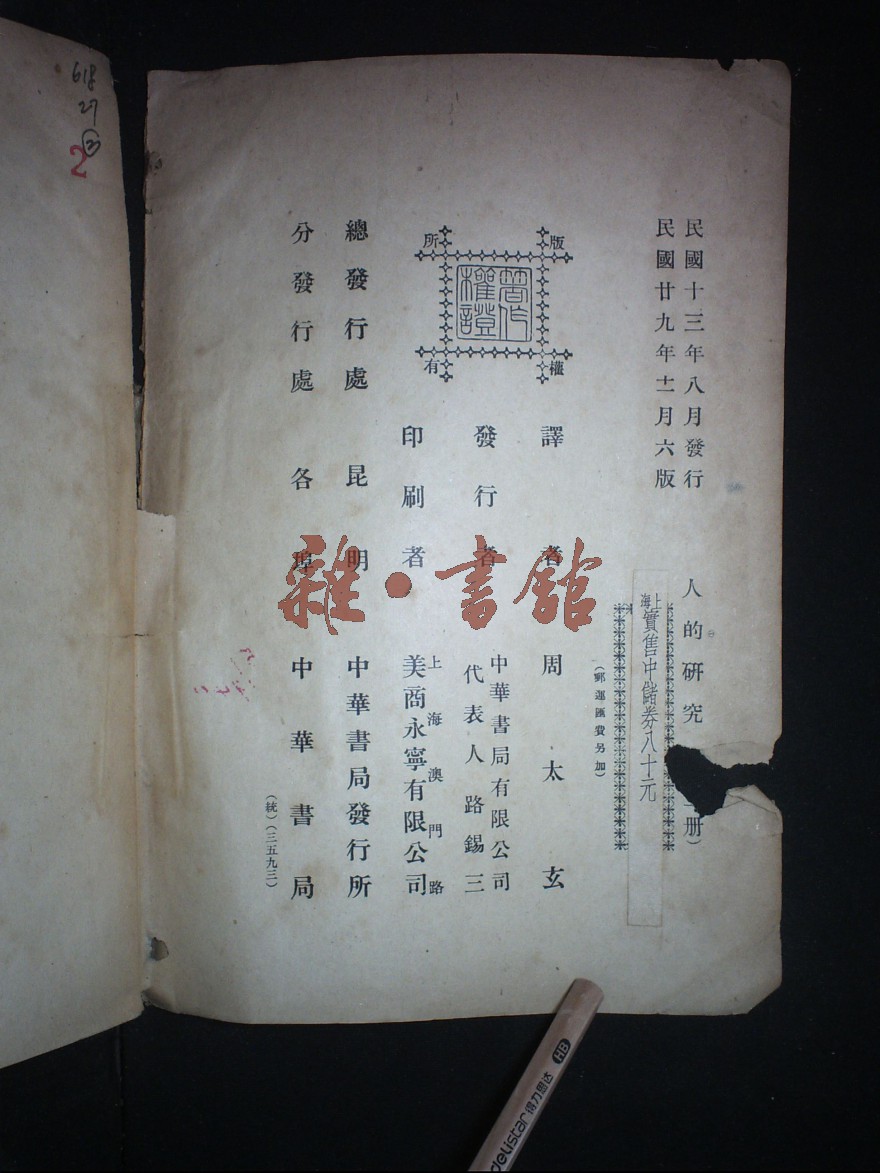 民國十三年八月發行
民國廿九年十一月六版
人的研究
册）
上海實售中儲券八十元
（郵運匯費另加）
版權所有
著作權證
譯者 周太玄
發行者 中華書局有限公司
代表人路錫三
印刷者 上海澳門路
美商永寧有限公司
總發行處 昆明 中華書局發行所
分發行處 各埠 中華書局
（統）（三五九三）
雜·書館
618
27
2
delistar 得力思达 HB